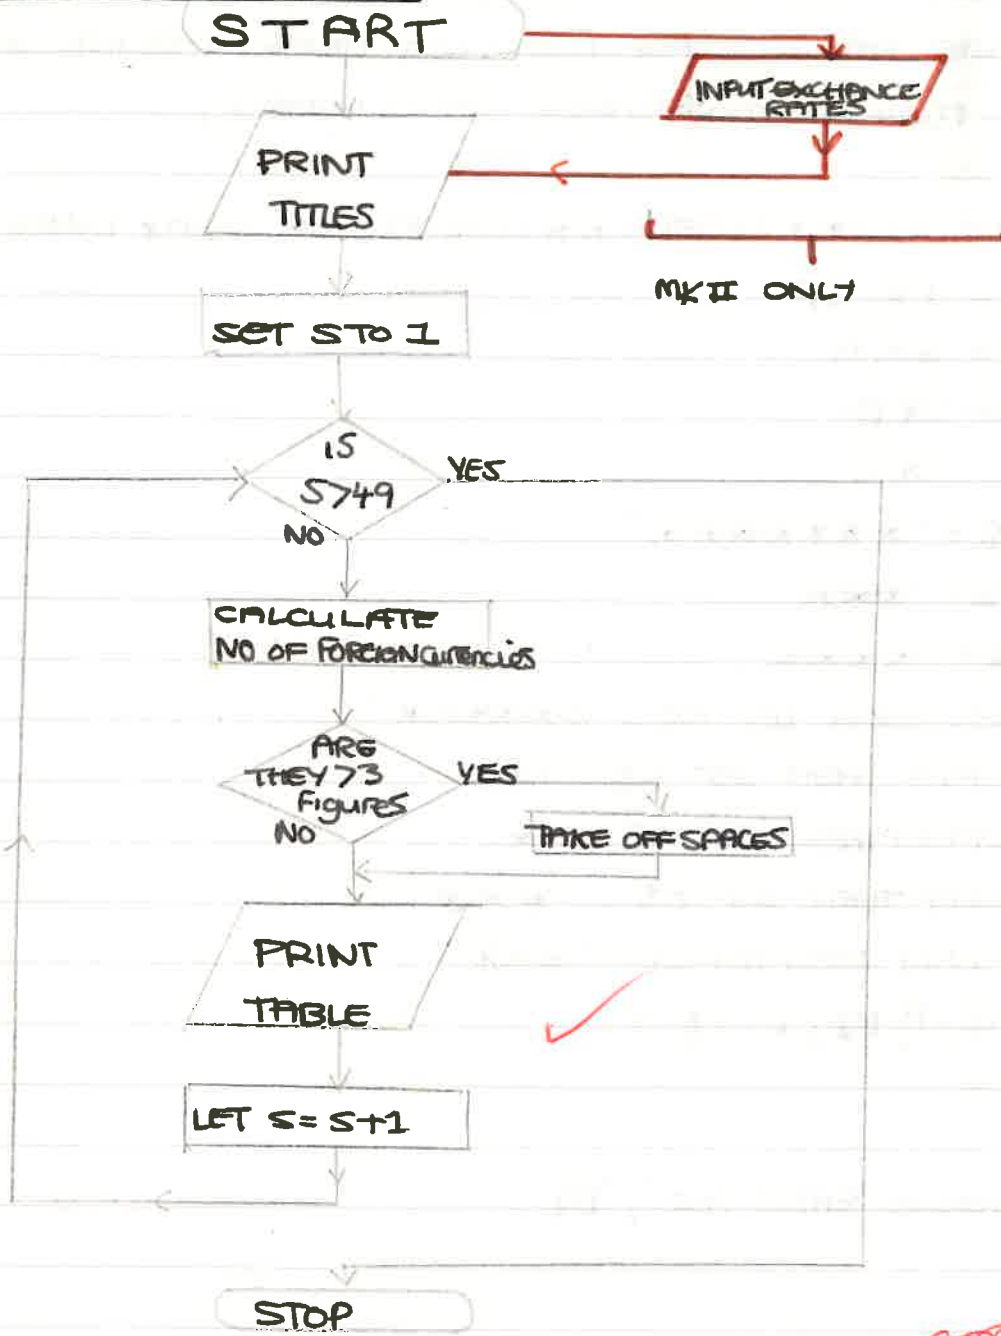 START
INPUT EXCHANGE
RATES
PRINT
TITLES
MK II ONLY
SET S TO 1
IS
S>49
YES
NO
CALCULATE
NO OF FOREIGN CURRENCIES
ARE
THEY >3
FIGURES
YES
NO
TAKE OFF SPACES
PRINT
TABLE
LET S = S+1
STOP